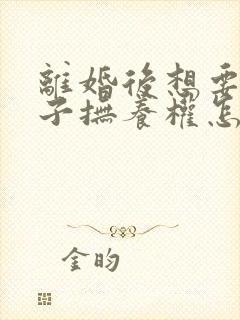 離婚後想要
子撫養權怎
金昀